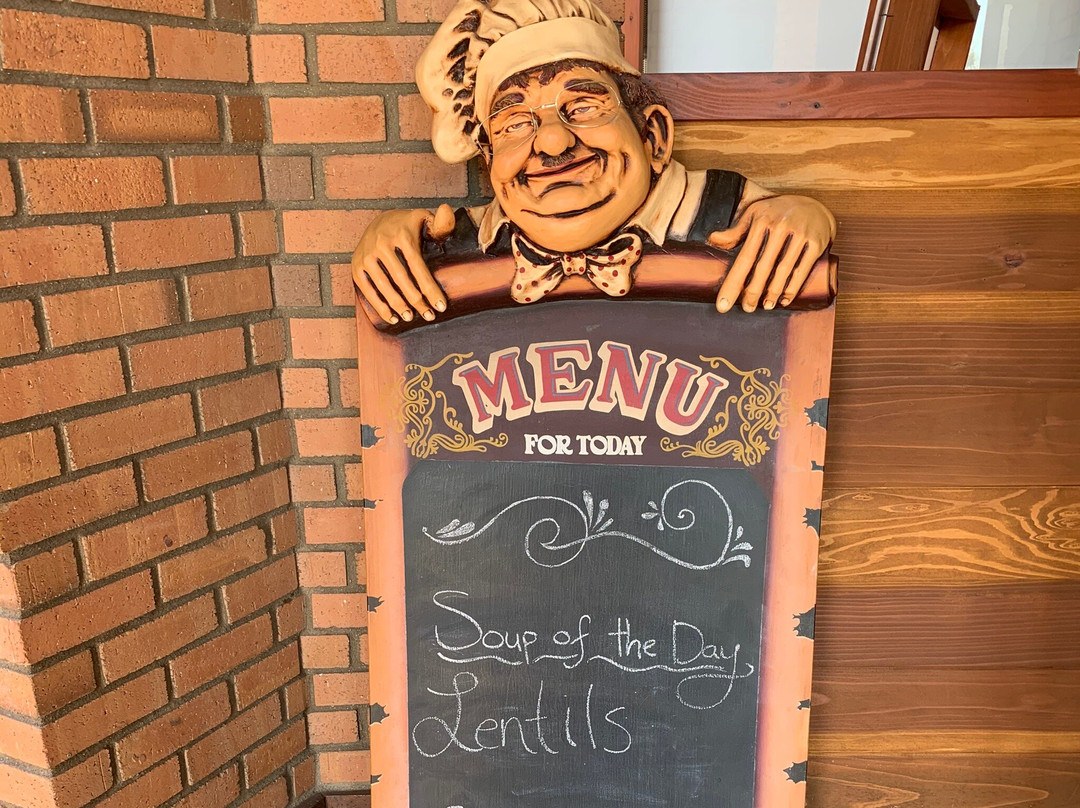 MENU
FOR TODAY
Soup of the Day
Lentils